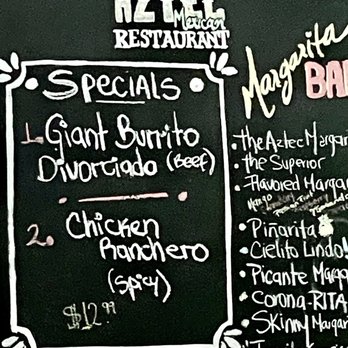 AZTEC
Mexican
RESTAURANT
Specials
1. Giant Burrito
Divorciado (Beef)
2. Chicken
Ranchero
(Spicy)
$12.99
Margarita
BA
• The Aztec Margar
• The Superior
• Flavored Margar
Mango
• Piñarita
• Cielito Lindo!
• Picante Marga
• Corona-RITA
• Skinny Margar